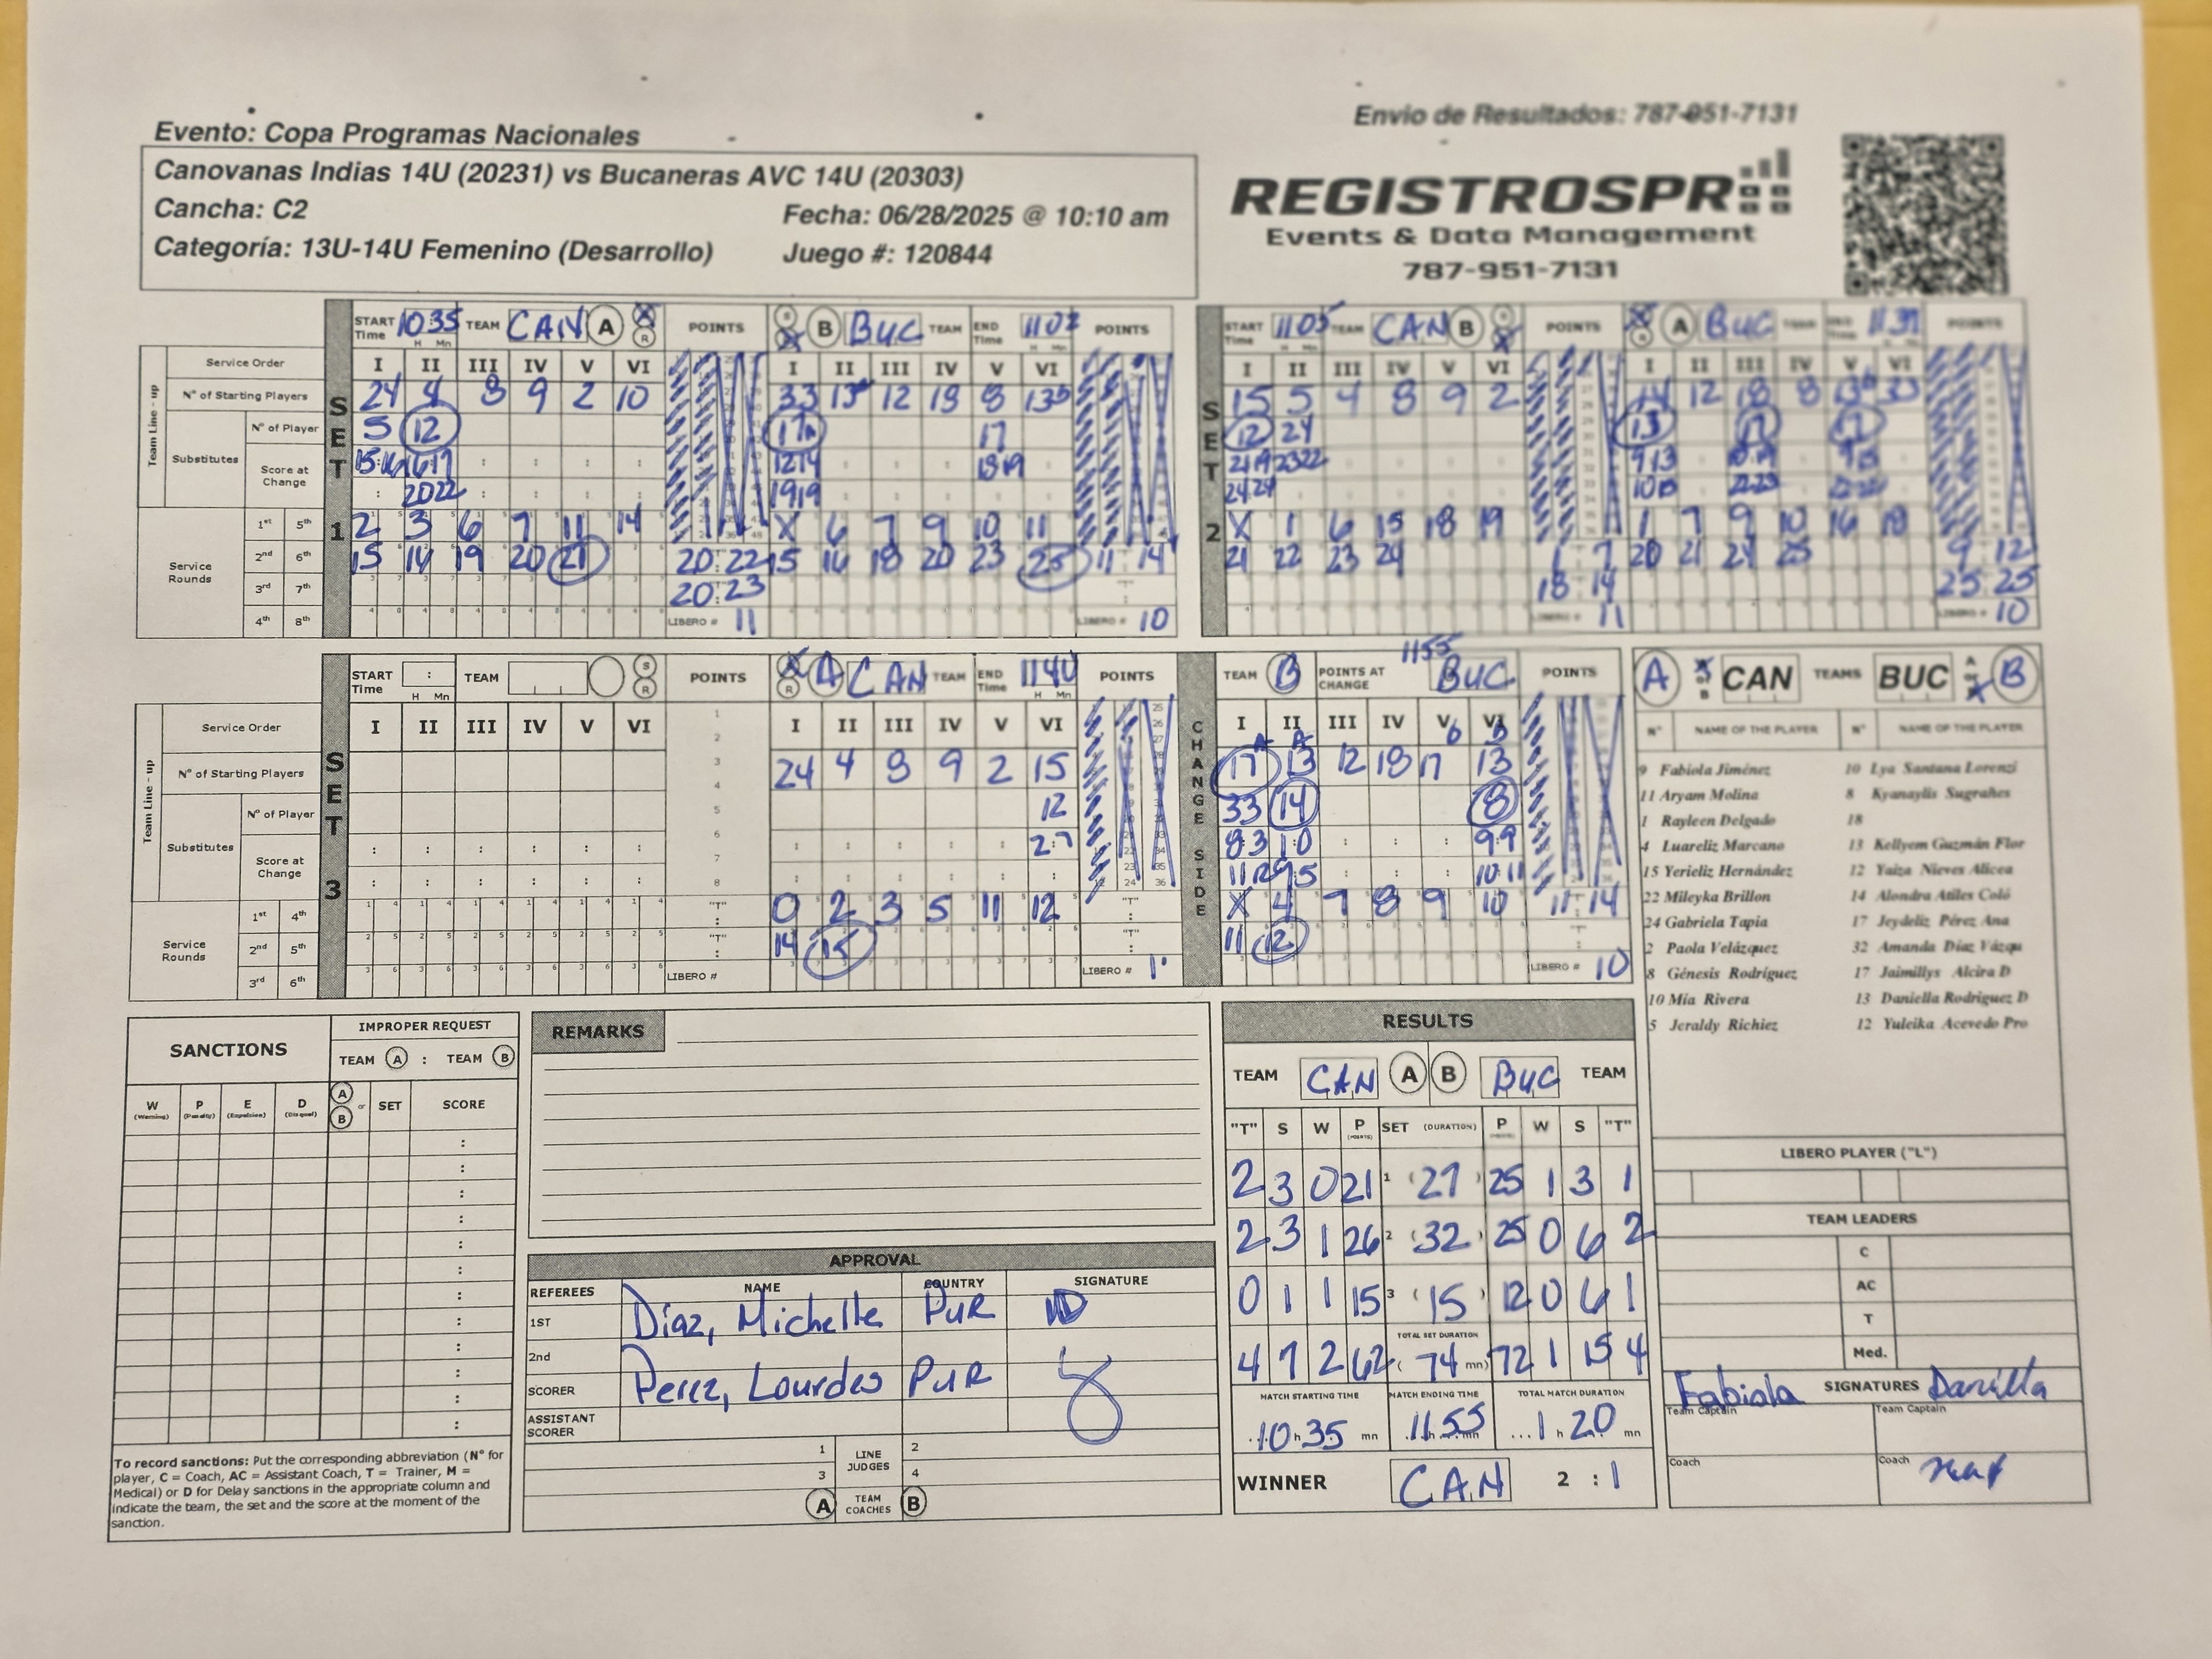 Evento: Copa Programas Nacionales
Envio de Resultados: 787-951-7131
Canovanas Indias 14U (20231) vs Bucaneras AVC 14U (20303)
Cancha: C2
Fecha: 06/28/2025 @ 10:10 am
Categoría: 13U-14U Femenino (Desarrollo)
Juego #: 120844
REGISTROSPR
Events & Data Management
787-951-7131
START Time 10:35 TEAM CAN A POINTS B BUC TEAM END Time 1102 POINTS
Service Order I II III IV V VI I II III IV V VI
N° of Starting Players 24 4 8 9 2 10 33 12 18 8
Team Line-up
Substitutes
N° of Player 5 12 17
Score at Change
SET 1
1st 5th 2 3 6 7 11 14 X 6 7 9 10 11
2nd 6th 15 16 19 20 21 20:22 15 16 18 20 23 25 11:14
Service Rounds
3rd 7th 20:23
4th 8th LIBERO # 11 LIBERO # 10
START Time 1105 TEAM CAN B POINTS A BUC
I II III IV V VI I II III IV V VI
15 5 4 8 9 2 12 18 8
12 24 13
SET 2
X 1 6 15 18 19 1 7 9 10 16 18
21 22 23 24 1 7 20 21 24 25 9 12
18 14 25 25
LIBERO # 11 LIBERO # 10
START Time : TEAM S R POINTS A CAN TEAM END Time 1140 POINTS
Service Order I II III IV V VI I II III IV V VI
N° of Starting Players 24 4 8 9 2 15
Team Line-up
Substitutes
N° of Player 12
Score at Change 2:7
SET 3
1st 4th 0 2 3 5 11 12
2nd 5th 14 15
Service Rounds
3rd 6th
LIBERO # LIBERO #
CHANGE SIDE
TEAM B POINTS AT CHANGE 1155 BUC POINTS
I II III IV V VI
17 13 12 18 17 13
33 14 8
X 4 7 8 9 10 11:14
11 12
LIBERO # 10
A CAN TEAMS BUC B
N° NAME OF THE PLAYER N° NAME OF THE PLAYER
9 Fabiola Jiménez 10 Lya Santana Lorenzi
11 Aryam Molina 8 Kyanaylis Sugrañes
1 Rayleen Delgado 18
4 Luareliz Marcano 13 Kellyem Guzmán Flor
15 Yerieliz Hernández 12 Yaiza Nieves Alicea
22 Mileyka Brillon 14 Alondra Atiles Coló
24 Gabriela Tapia 17 Jeydeliz Pérez Ana
2 Paola Velázquez 32 Amanda Díaz Vázqu
8 Génesis Rodríguez 17 Jaimillys Alcira D
10 Mía Rivera 13 Daniella Rodriguez D
5 Jeraldy Richiez 12 Yuleika Acevedo Pro
LIBERO PLAYER ("L")
TEAM LEADERS
C
AC
T
Med.
Fabiola SIGNATURES
Team Captain Team Captain
Coach Coach
SANCTIONS
IMPROPER REQUEST
TEAM A : TEAM B
W (Warning) P (Penalty) E (Expulsion) D (Disqual) A or B SET SCORE
To record sanctions: Put the corresponding abbreviation (N° for
player, C = Coach, AC = Assistant Coach, T = Trainer, M =
Medical) or D for Delay sanctions in the appropriate column and
indicate the team, the set and the score at the moment of the
sanction.
REMARKS
APPROVAL
REFEREES NAME COUNTRY SIGNATURE
1ST Díaz, Michelle PUR MD
2nd
SCORER Perez, Lourdes PUR
ASSISTANT SCORER
1 LINE JUDGES 2
3 4
A TEAM COACHES B
RESULTS
TEAM CAN A B BUC TEAM
"T" S W P SET (DURATION) P W S "T"
2 3 0 21 1 (27) 25 1 3 1
2 3 1 26 2 (32) 25 0 6 2
0 1 1 15 3 (15) 12 0 6 1
TOTAL SET DURATION
4 7 2 62 (74 mn) 72 1 15 4
MATCH STARTING TIME MATCH ENDING TIME TOTAL MATCH DURATION
10 h 35 mn 11 55 1 h 20 mn
WINNER CAN 2 : 1